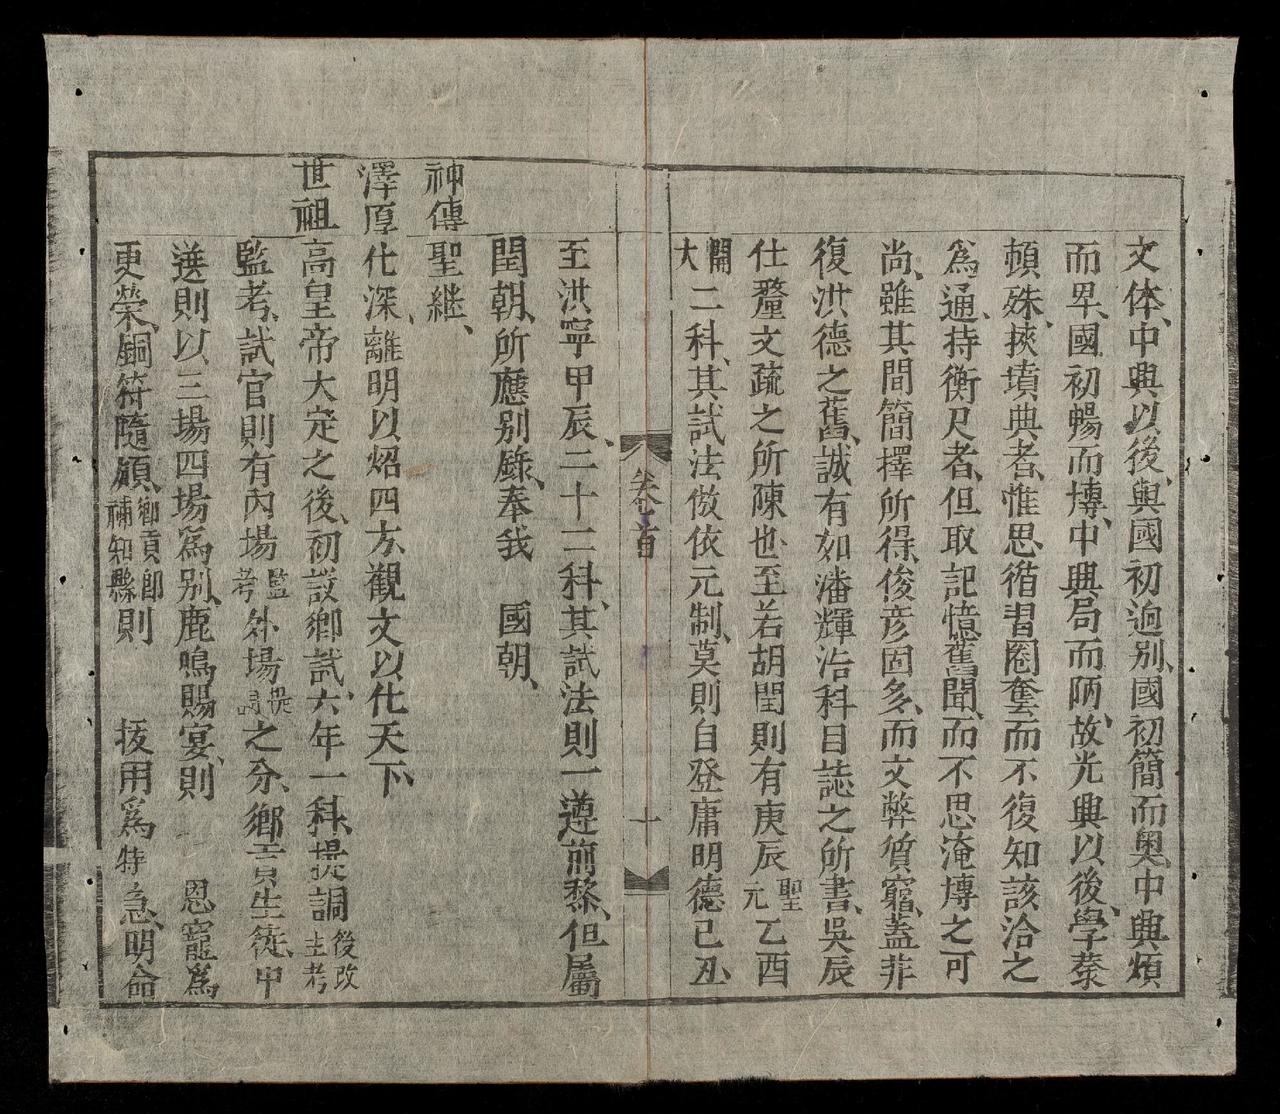 文体、中興以後、與國初逈別、國初簡而奧、中興煩
而卑、國初暢而博、中興局而陋、故光興以後、學蔡
頓殊、挾墳典者、惟思循習圈套、而不復知該洽之
爲通、持衡尺者、但取記憶舊聞、而不思淹博之可
尚、雖其間簡擇所得、俊彦固多、而文弊質窮、蓋非
復洪德之舊、誠有如潘輝治科目誌之所書、吳辰
仕釐文疏之所陳也、至若胡閏則有庚辰聖元乙酉
開大二科、其試法倣依元制、莫則自登庸明德己丑
至洪寧甲辰、二十二科、其試法則一遵前黎、但屬
閏朝、所應别錄、奉我 國朝、
神傳聖継、
澤厚化深、離明以炤四方、觀文以化天下、
世祖高皇帝大定之後、初設鄉試、六年一科、提調後改主考
監考、試官則有內場監考外場提調之分、鄉貢生徒、中
選則以三場四場爲别、鹿鳴賜宴、則 恩寵爲
更榮、銅符隨願、鄉貢郎補知縣則 拔用爲特急、明命
卷首
十